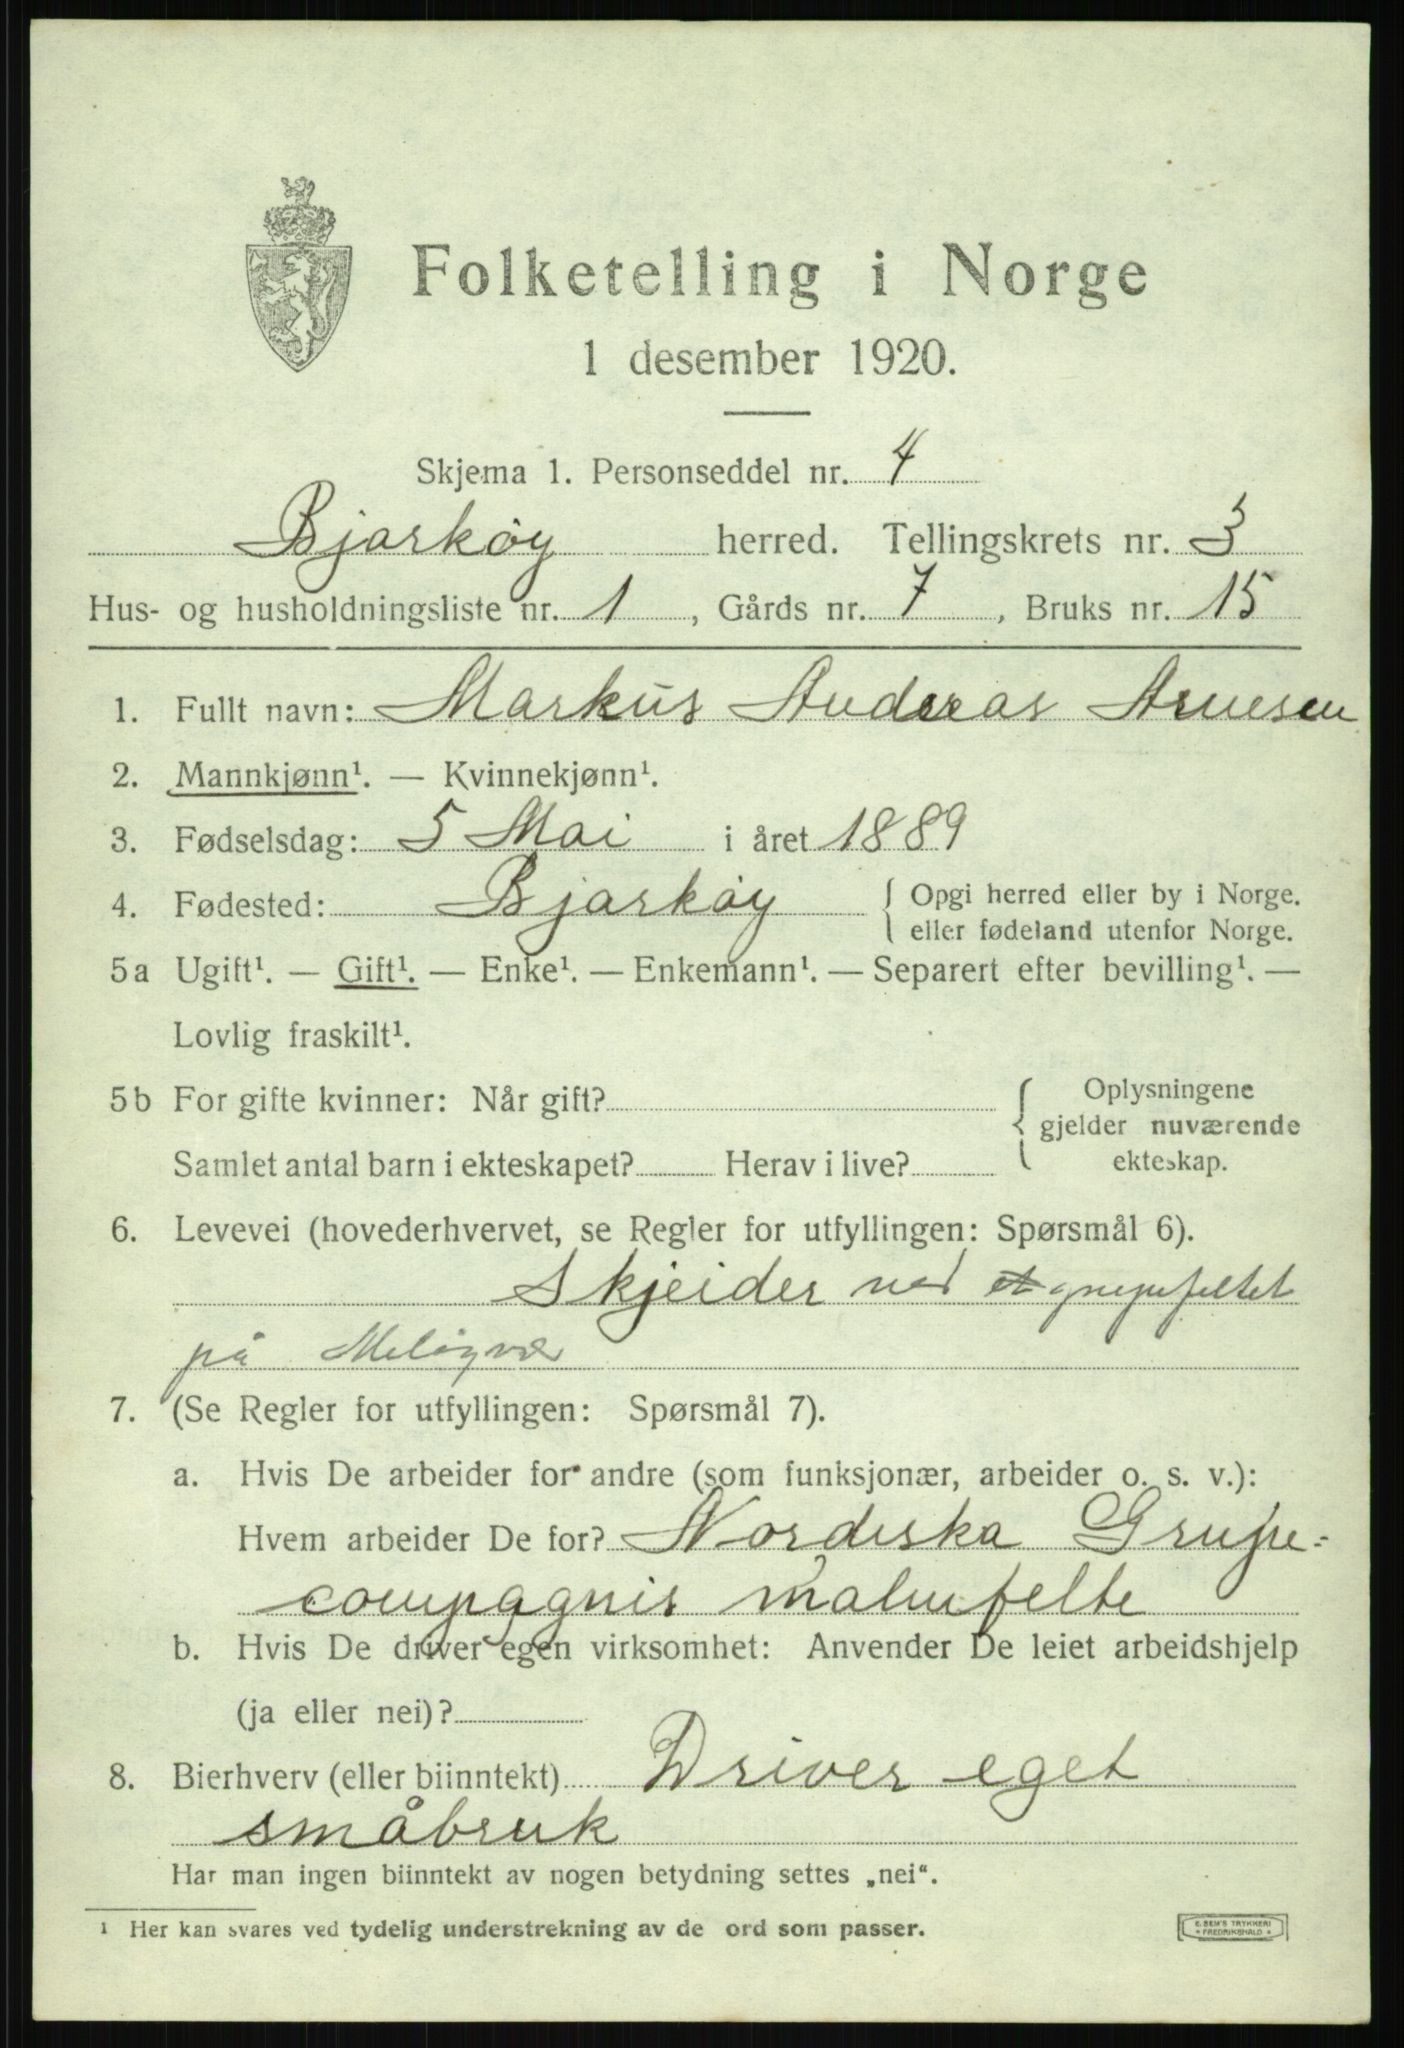 Folketelling i Norge
1 desember 1920.
Skjema 1. Personseddel nr. 4
Bjarköy herred. Tellingskrets nr. 3
Hus- og husholdningsliste nr. 1, Gårds nr. 7, Bruks nr. 15
1. Fullt navn: Markus Anderas Arnesen
2. Mannkjønn¹. — Kvinnekjønn¹.
3. Fødselsdag: 5 Mai i året 1889
4. Fødested: Bjarköy { Opgi herred eller by i Norge.
eller fødeland utenfor Norge.
5a Ugift¹. — Gift¹. — Enke¹. — Enkemann¹. — Separert efter bevilling¹. —
Lovlig fraskilt¹.
5b For gifte kvinner: Når gift? { Oplysningene
gjelder nuværende
Samlet antal barn i ekteskapet? Herav i live? ekteskap.
6. Levevei (hovederhvervet, se Regler for utfyllingen: Spørsmål 6).
Skjeider ved
på
7. (Se Regler for utfyllingen: Spørsmål 7).
a. Hvis De arbeider for andre (som funksjonær, arbeider o. s. v.):
Hvem arbeider De for? Nordiska Grupe-
compagnis malmfelte
b. Hvis De driver egen virksomhet: Anvender De leiet arbeidshjelp
(ja eller nei)?
8. Bierhverv (eller biinntekt) Driver eget
småbruk
Har man ingen biinntekt av nogen betydning settes „nei“.
¹ Her kan svares ved tydelig understrekning av de ord som passer.
E. SEM'S TRYKKERI
FREDRIKSHALD